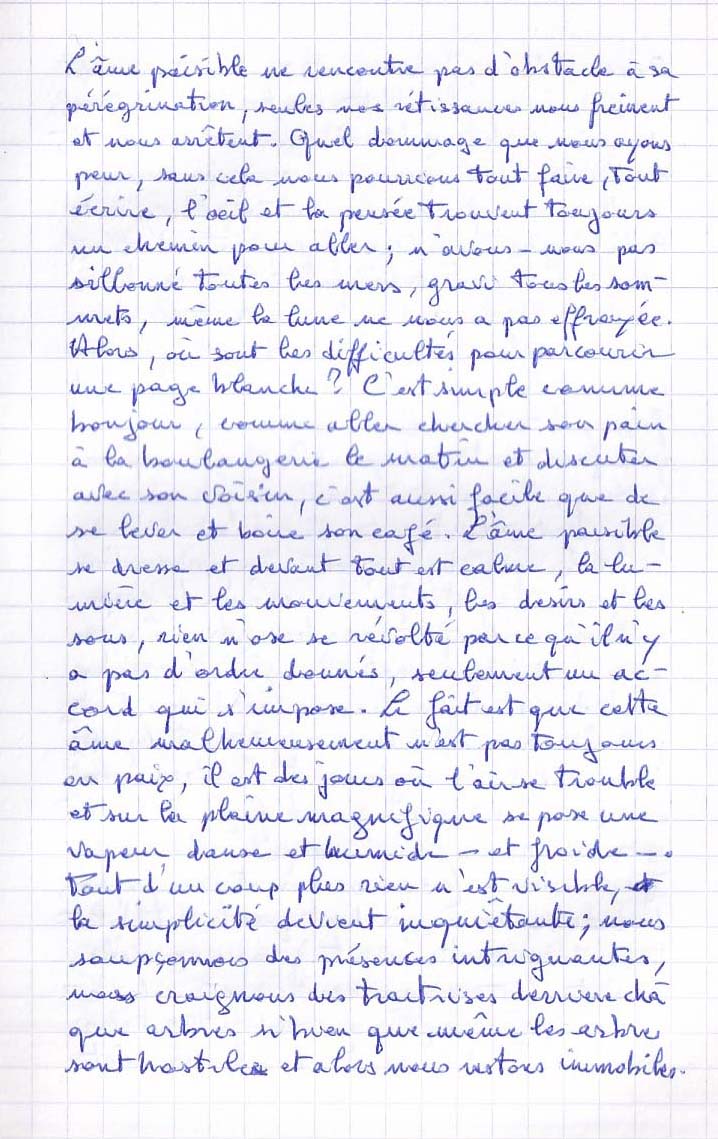 L'âme paisible ne rencontre pas d'obstacle à sa
pérégrination, seules nos rétissances nous freinent
et nous arrêtent. Quel dommage que nous ayons
peur, sans cela nous pourrions tout faire, tout
écrire, l'oeil et la pensée trouvent toujours
un chemin pour aller; n'avons-nous pas
sillonné toutes les mers, gravi tous les som-
mets, même la lune ne nous a pas effrayée.
Alors, où sont les difficultés pour parcourir
une page blanche? C'est simple comme
bonjour, comme aller chercher son pain
à la boulangerie le matin et discuter
avec son voisin, c'est aussi facile que de
se lever et boire son café. L'âme paisible
se dresse et devant tout est calme, la lu-
mière et les mouvements, les desirs et les
sons, rien n'ose se révolté parce qu'il n'y
a pas d'ordre donnés, seulement un ac-
cord qui s'impose. Le fait est que cette
âme malheureusement n'est pas toujours
en paix, il est des jours où l'air se trouble
et sur la plaine magnifique se pose une
vapeur danse et humide - et froide -.
Tout d'un coup plus rien n'est visible, et
la simplicité devient inquiètante; nous
soupçonnons des présences intriguantes,
nous craignons des traitrises derriere cha
que arbres si bien que même les arbre
sont hostiles et alors nous restons immobiles.